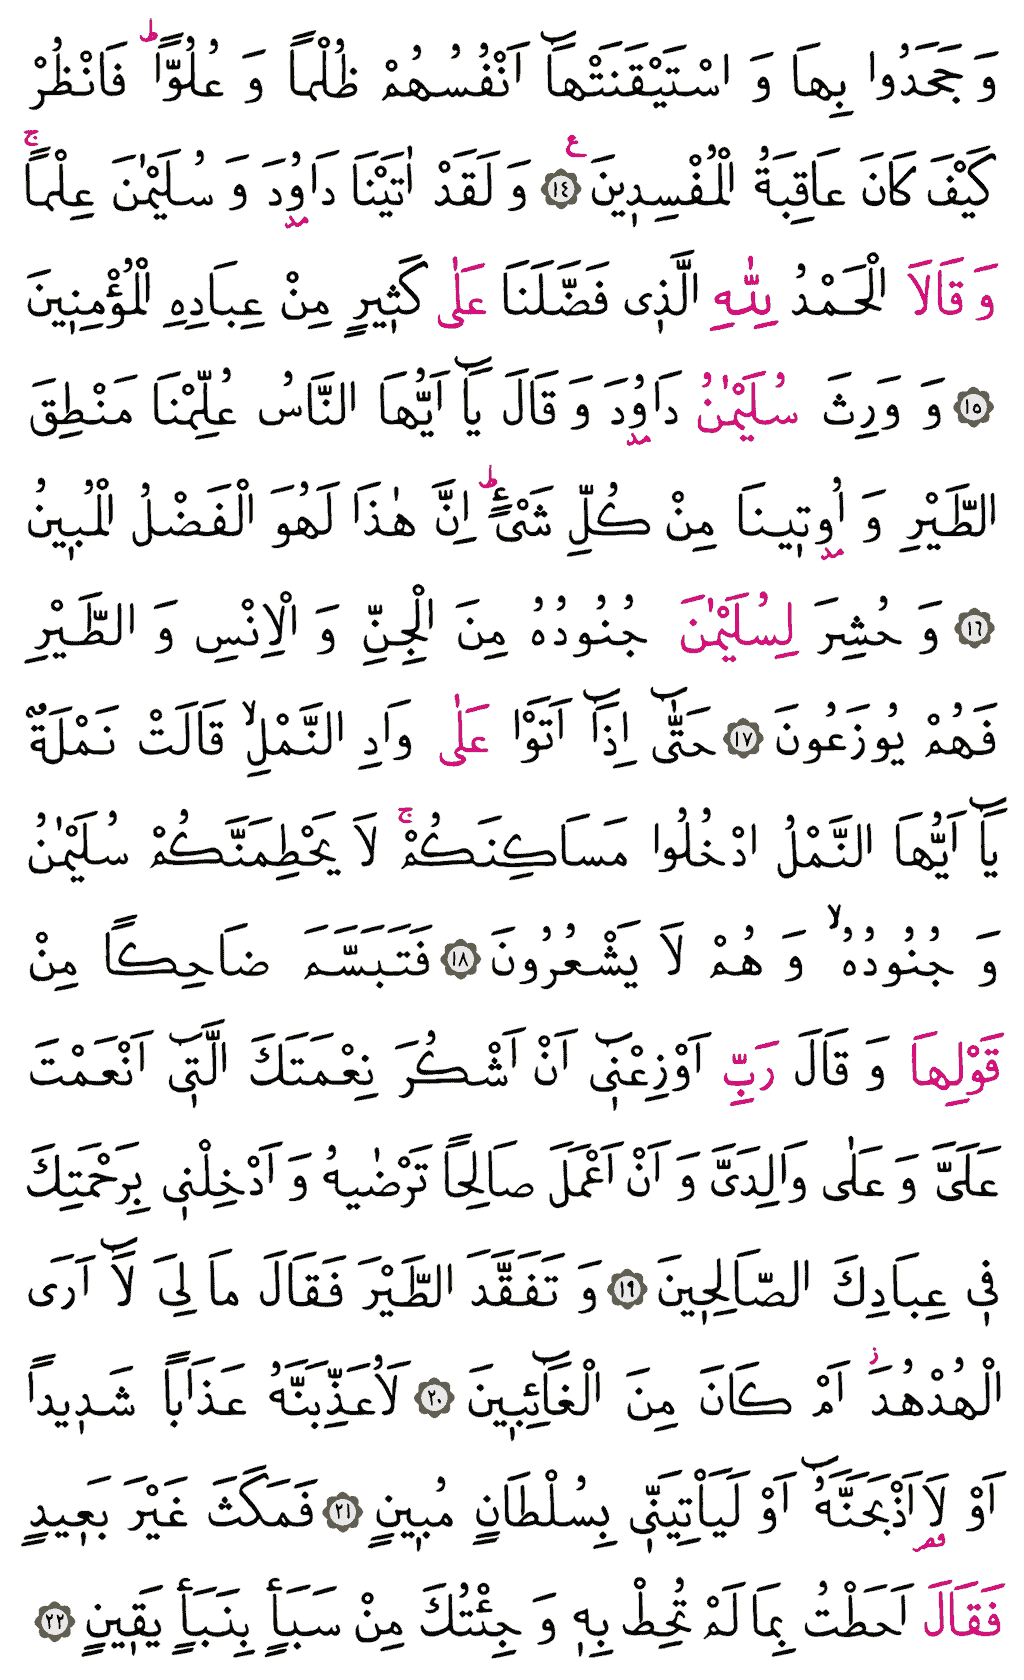 وَ جَحَدُوا بِهَا وَ اسْتَيْقَنَتْهَآ اَنْفُسُهُمْ ظُلْمًا وَ عُلُوًّاۜ فَانْظُرْ
كَيْفَ كَانَ عَاقِبَةُ الْمُفْسِدٖينَ ع ﴿١٤﴾ وَ لَقَدْ اٰتَيْنَا دَاوُدَ وَ سُلَيْمٰنَ عِلْمًاۚ
وَ قَالَا الْحَمْدُ لِلّٰهِ الَّذٖى فَضَّلَنَا عَلٰى كَثٖيرٍ مِنْ عِبَادِهِ الْمُؤْمِنٖينَ
﴿١٥﴾ وَ وَرِثَ سُلَيْمٰنُ دَاوُدَ وَ قَالَ يَآ اَيُّهَا النَّاسُ عُلِّمْنَا مَنْطِقَ
الطَّيْرِ وَ اُوتٖينَا مِنْ كُلِّ شَىْءٍۜ اِنَّ هٰذَا لَهُوَ الْفَضْلُ الْمُبٖينُ
﴿١٦﴾ وَ حُشِرَ لِسُلَيْمٰنَ جُنُودُهُ مِنَ الْجِنِّ وَ الْاِنْسِ وَ الطَّيْرِ
فَهُمْ يُوزَعُونَ ﴿١٧﴾ حَتّٰٓى اِذَآ اَتَوْا عَلٰى وَادِ النَّمْلِۙ قَالَتْ نَمْلَةٌ
يَآ اَيُّهَا النَّمْلُ ادْخُلُوا مَسَاكِنَكُمْۚ لَا يَحْطِمَنَّكُمْ سُلَيْمٰنُ
وَ جُنُودُهُۙ وَ هُمْ لَا يَشْعُرُونَ ﴿١٨﴾ فَتَبَسَّمَ ضَاحِكًا مِنْ
قَوْلِهَا وَ قَالَ رَبِّ اَوْزِعْنٖٓى اَنْ اَشْكُرَ نِعْمَتَكَ الَّتٖٓى اَنْعَمْتَ
عَلَىَّ وَ عَلٰى وَالِدَىَّ وَ اَنْ اَعْمَلَ صَالِحًا تَرْضٰيهُ وَ اَدْخِلْنٖى بِرَحْمَتِكَ
فٖى عِبَادِكَ الصَّالِحٖينَ ﴿١٩﴾ وَ تَفَقَّدَ الطَّيْرَ فَقَالَ مَا لِىَ لَآ اَرَى
الْهُدْهُدَؗ اَمْ كَانَ مِنَ الْغَآئِبٖينَ ﴿٢٠﴾ لَاُعَذِّبَنَّهُ عَذَابًا شَدٖيدًا
اَوْ لَااَذْبَحَنَّهُٓ اَوْ لَيَاْتِيَنّٖى بِسُلْطَانٍ مُبٖينٍ ﴿٢١﴾ فَمَكَثَ غَيْرَ بَعٖيدٍ
فَقَالَ اَحَطْتُ بِمَا لَمْ تُحِطْ بِهٖ وَ جِئْتُكَ مِنْ سَبَأٍ بِنَبَأٍ يَقٖينٍ ﴿٢٢﴾